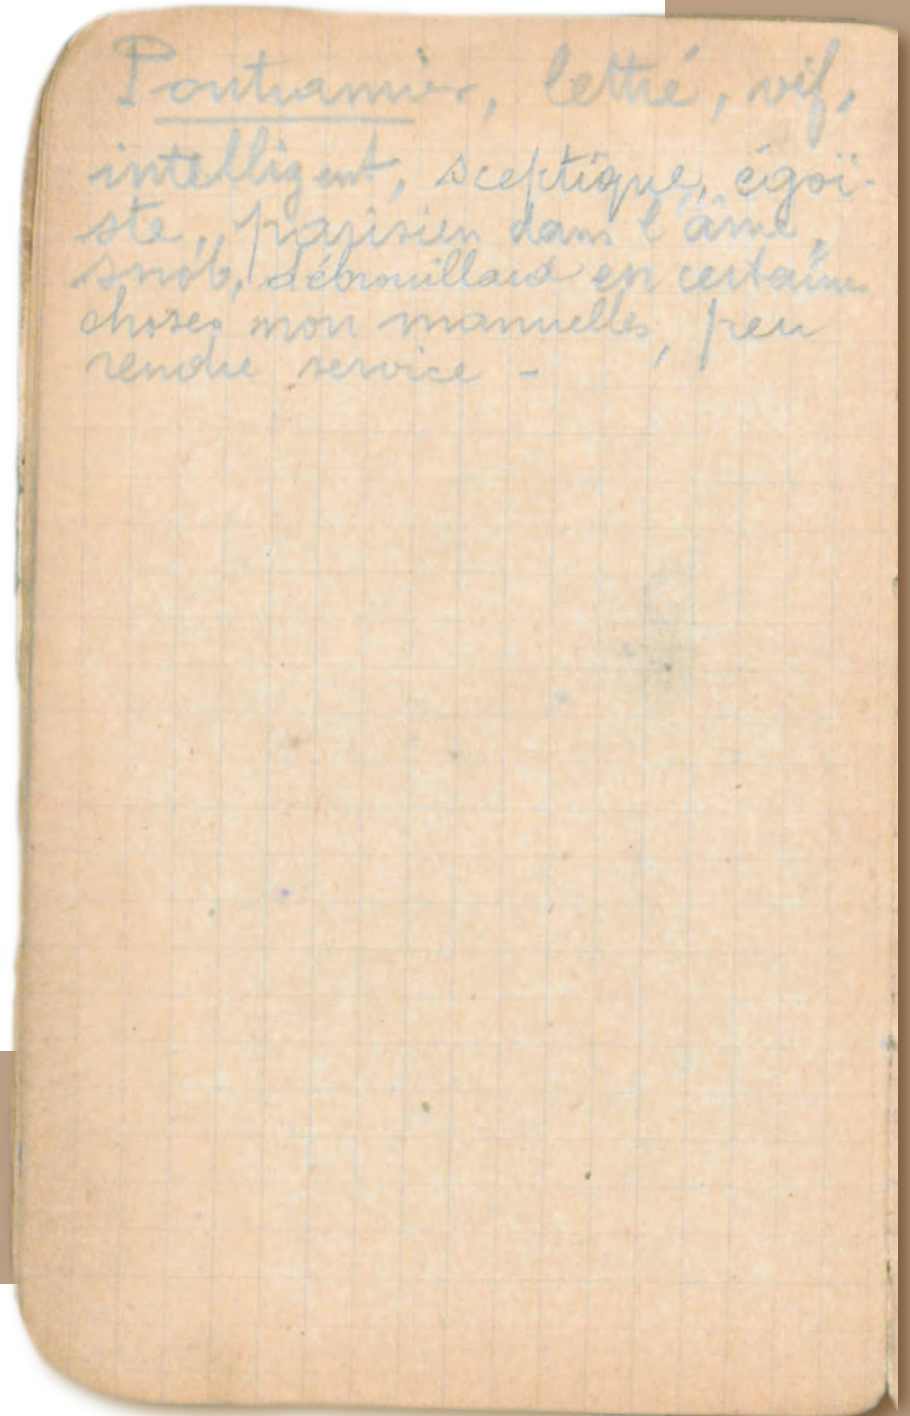 Pontramier, lettré, vif,
intelligent, sceptique, égoï-
ste, parisien dans l'âme,
snob, débrouillard en certaines
choses non manuelles, peu
rendre service -